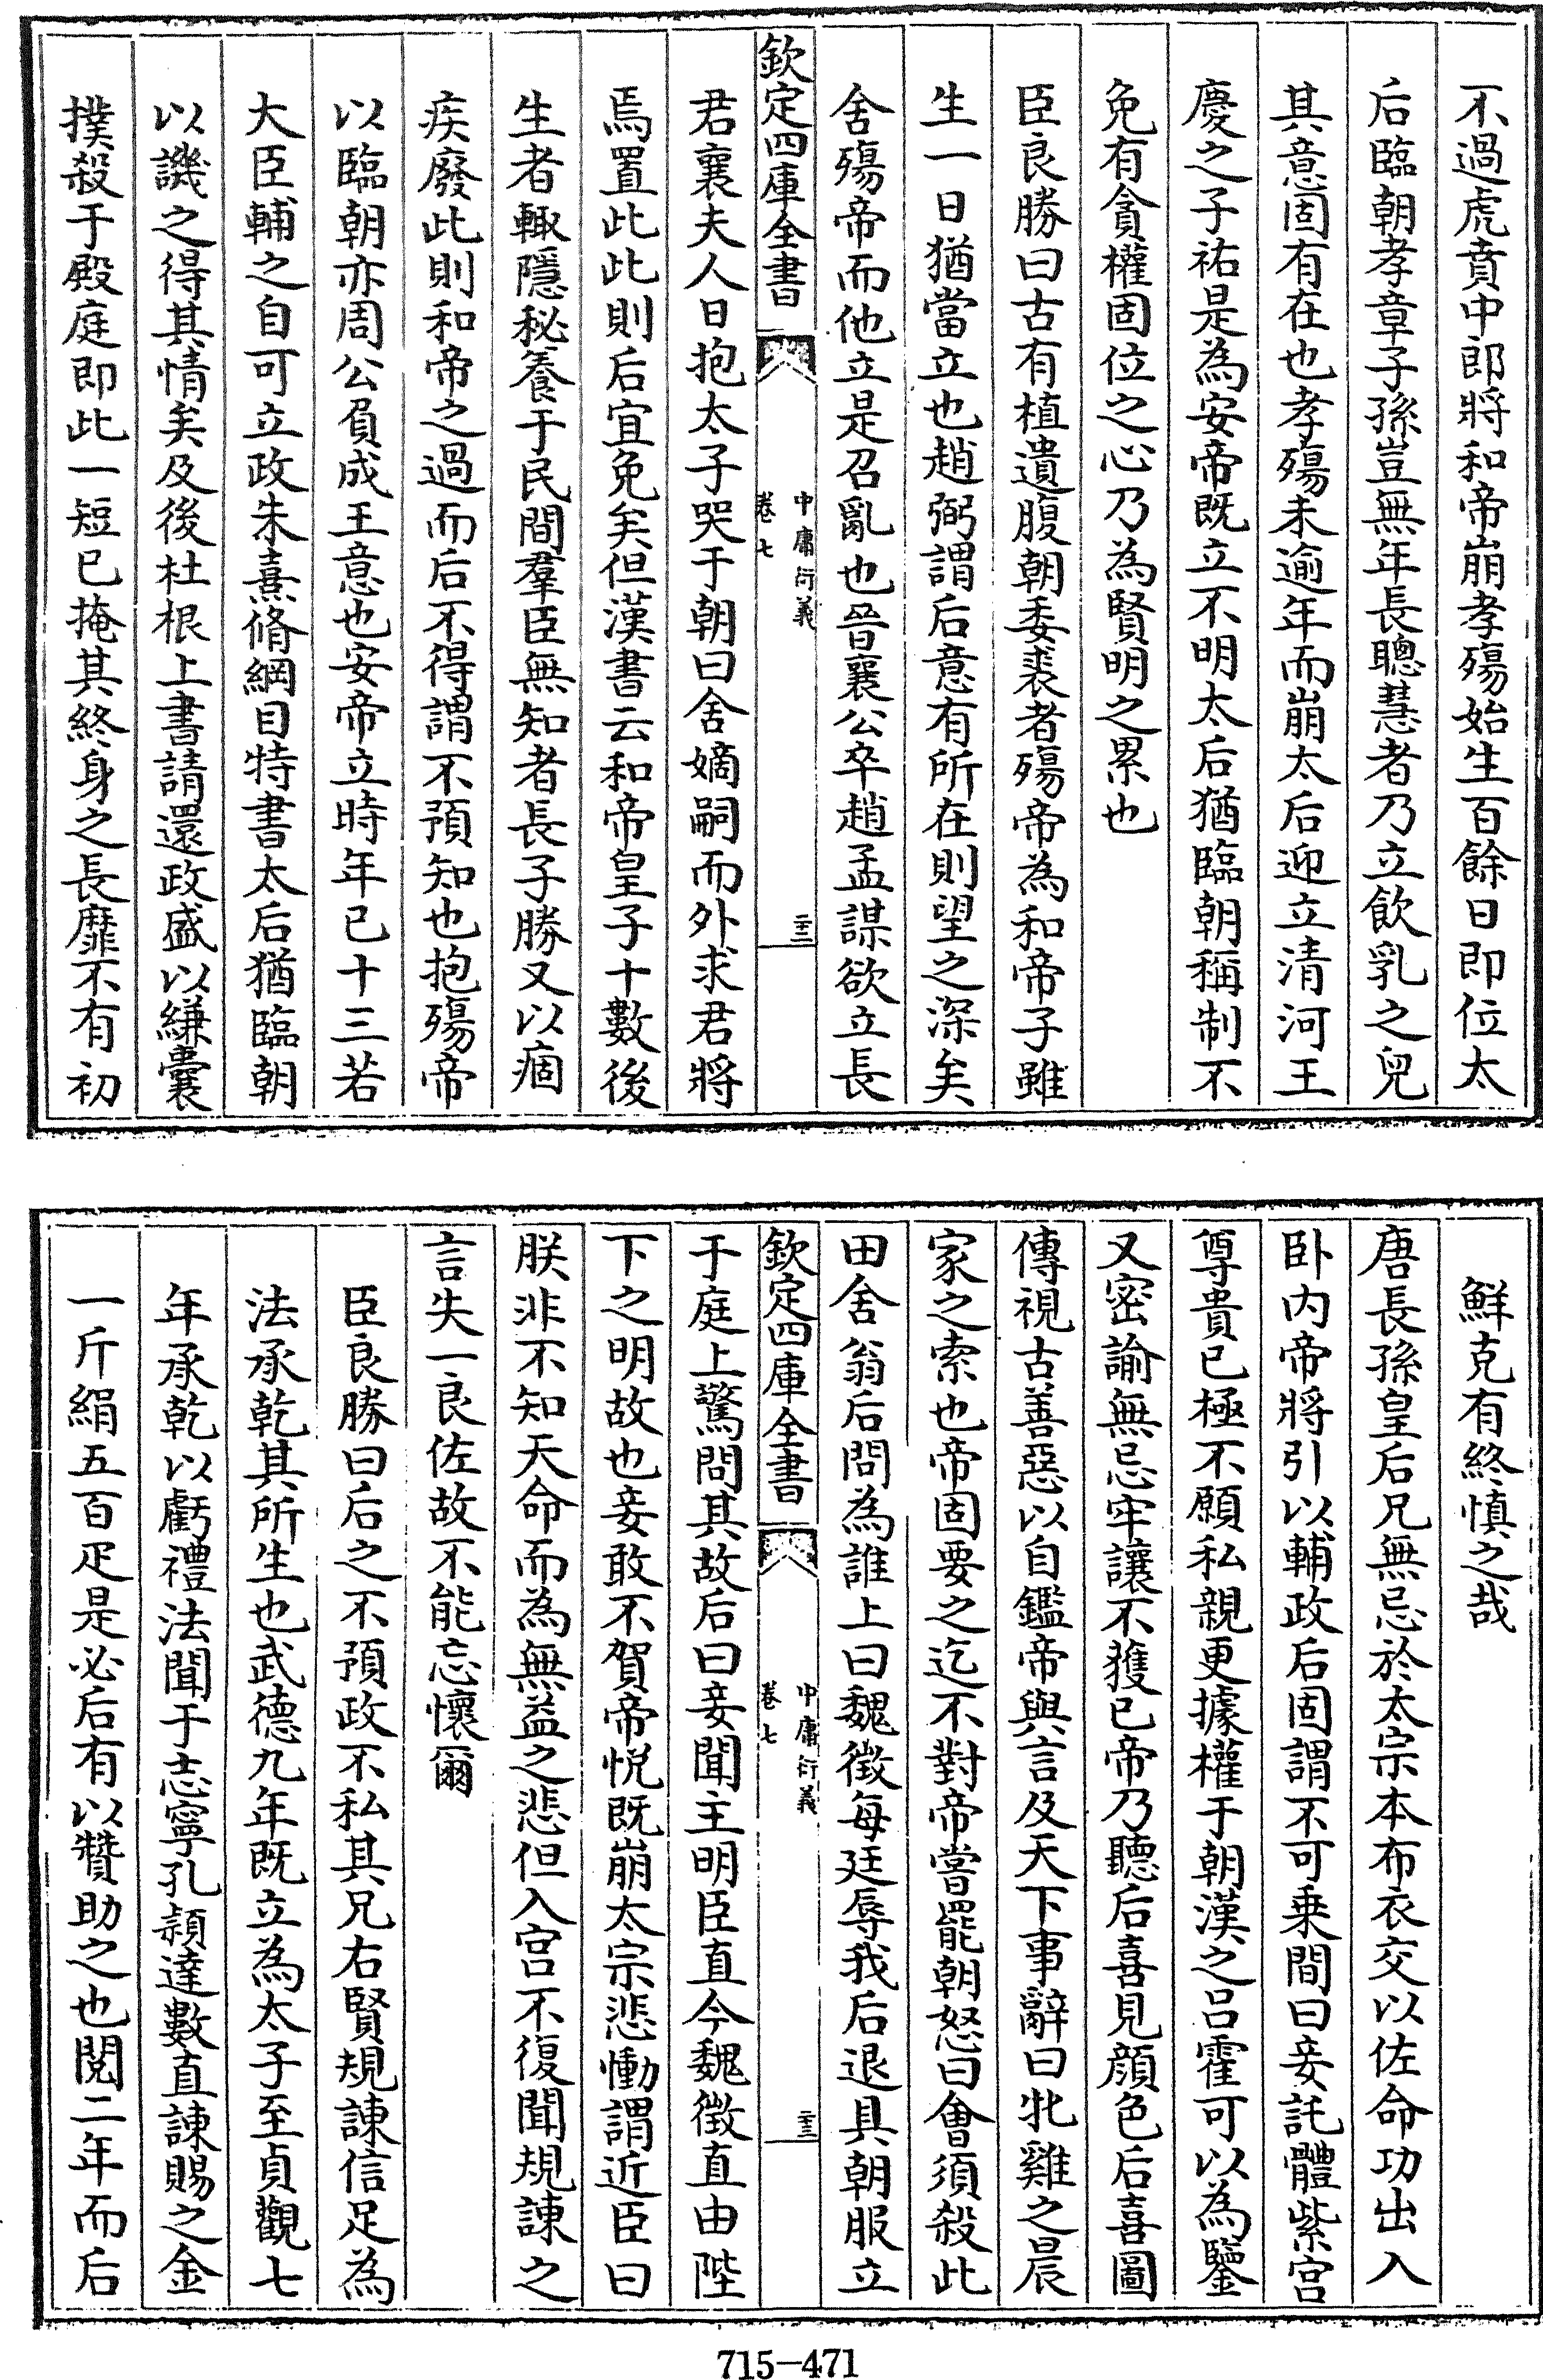 不過虎賁中郎將和帝崩孝殤始生百餘日即位太
后臨朝孝章子孫豈無年長聰慧者乃立飲乳之兒
其意固有在也孝殤未逾年而崩太后迎立清河王
慶之子祐是為安帝既立不明太后猶臨朝稱制不
免有貪權固位之心乃為賢明之累也
臣良勝曰古有植遺腹朝委裘者殤帝為和帝子雖
生一日猶當立也趙弼謂后意有所在則望之深矣
舍殤帝而他立是召亂也晉襄公卒趙孟謀欲立長
欽定四庫全書
中庸衍義
卷七
二十二
君襄夫人日抱太子哭于朝曰舍嫡嗣而外求君將
焉置此此則后宜免矣但漢書云和帝皇子十數後
生者輙隱秘養于民間羣臣無知者長子勝又以痼
疾廢此則和帝之過而后不得謂不預知也抱殤帝
以臨朝亦周公負成王意也安帝立時年已十三若
大臣輔之自可立政朱熹脩綱目特書太后猶臨朝
以譏之得其情矣及後杜根上書請還政盛以縑囊
撲殺于殿庭即此一短已掩其終身之長靡不有初
鮮克有終慎之哉
唐長孫皇后兄無忌於太宗本布衣交以佐命功出入
卧内帝將引以輔政后固謂不可乗間曰妾託體紫宫
尊貴已極不願私親更據權于朝漢之吕霍可以為鑒
又密諭無忌牢讓不獲已帝乃聽后喜見顔色后喜圖
傳視古善惡以自鑑帝與言及天下事辭曰牝雞之晨
家之索也帝固要之迄不對帝嘗罷朝怒曰會須殺此
田舍翁后問為誰上曰魏徵每廷辱我后退具朝服立
欽定四庫全書
中庸衍義
卷七
二十三
于庭上驚問其故后曰妾聞主明臣直今魏徵直由陛
下之明故也妾敢不賀帝悦既崩太宗悲慟謂近臣曰
朕非不知天命而為無益之悲但入宫不復聞規諫之
言失一良佐故不能忘懷爾
臣良勝曰后之不預政不私其兄右賢規諫信足為
法承乾其所生也武德九年既立為太子至貞觀七
年承乾以虧禮法聞于志寧孔頴達數直諫賜之金
一斤絹五百疋是必后有以贊助之也閲二年而后
715-471